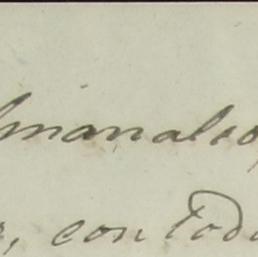 lmanalco,
, con toda